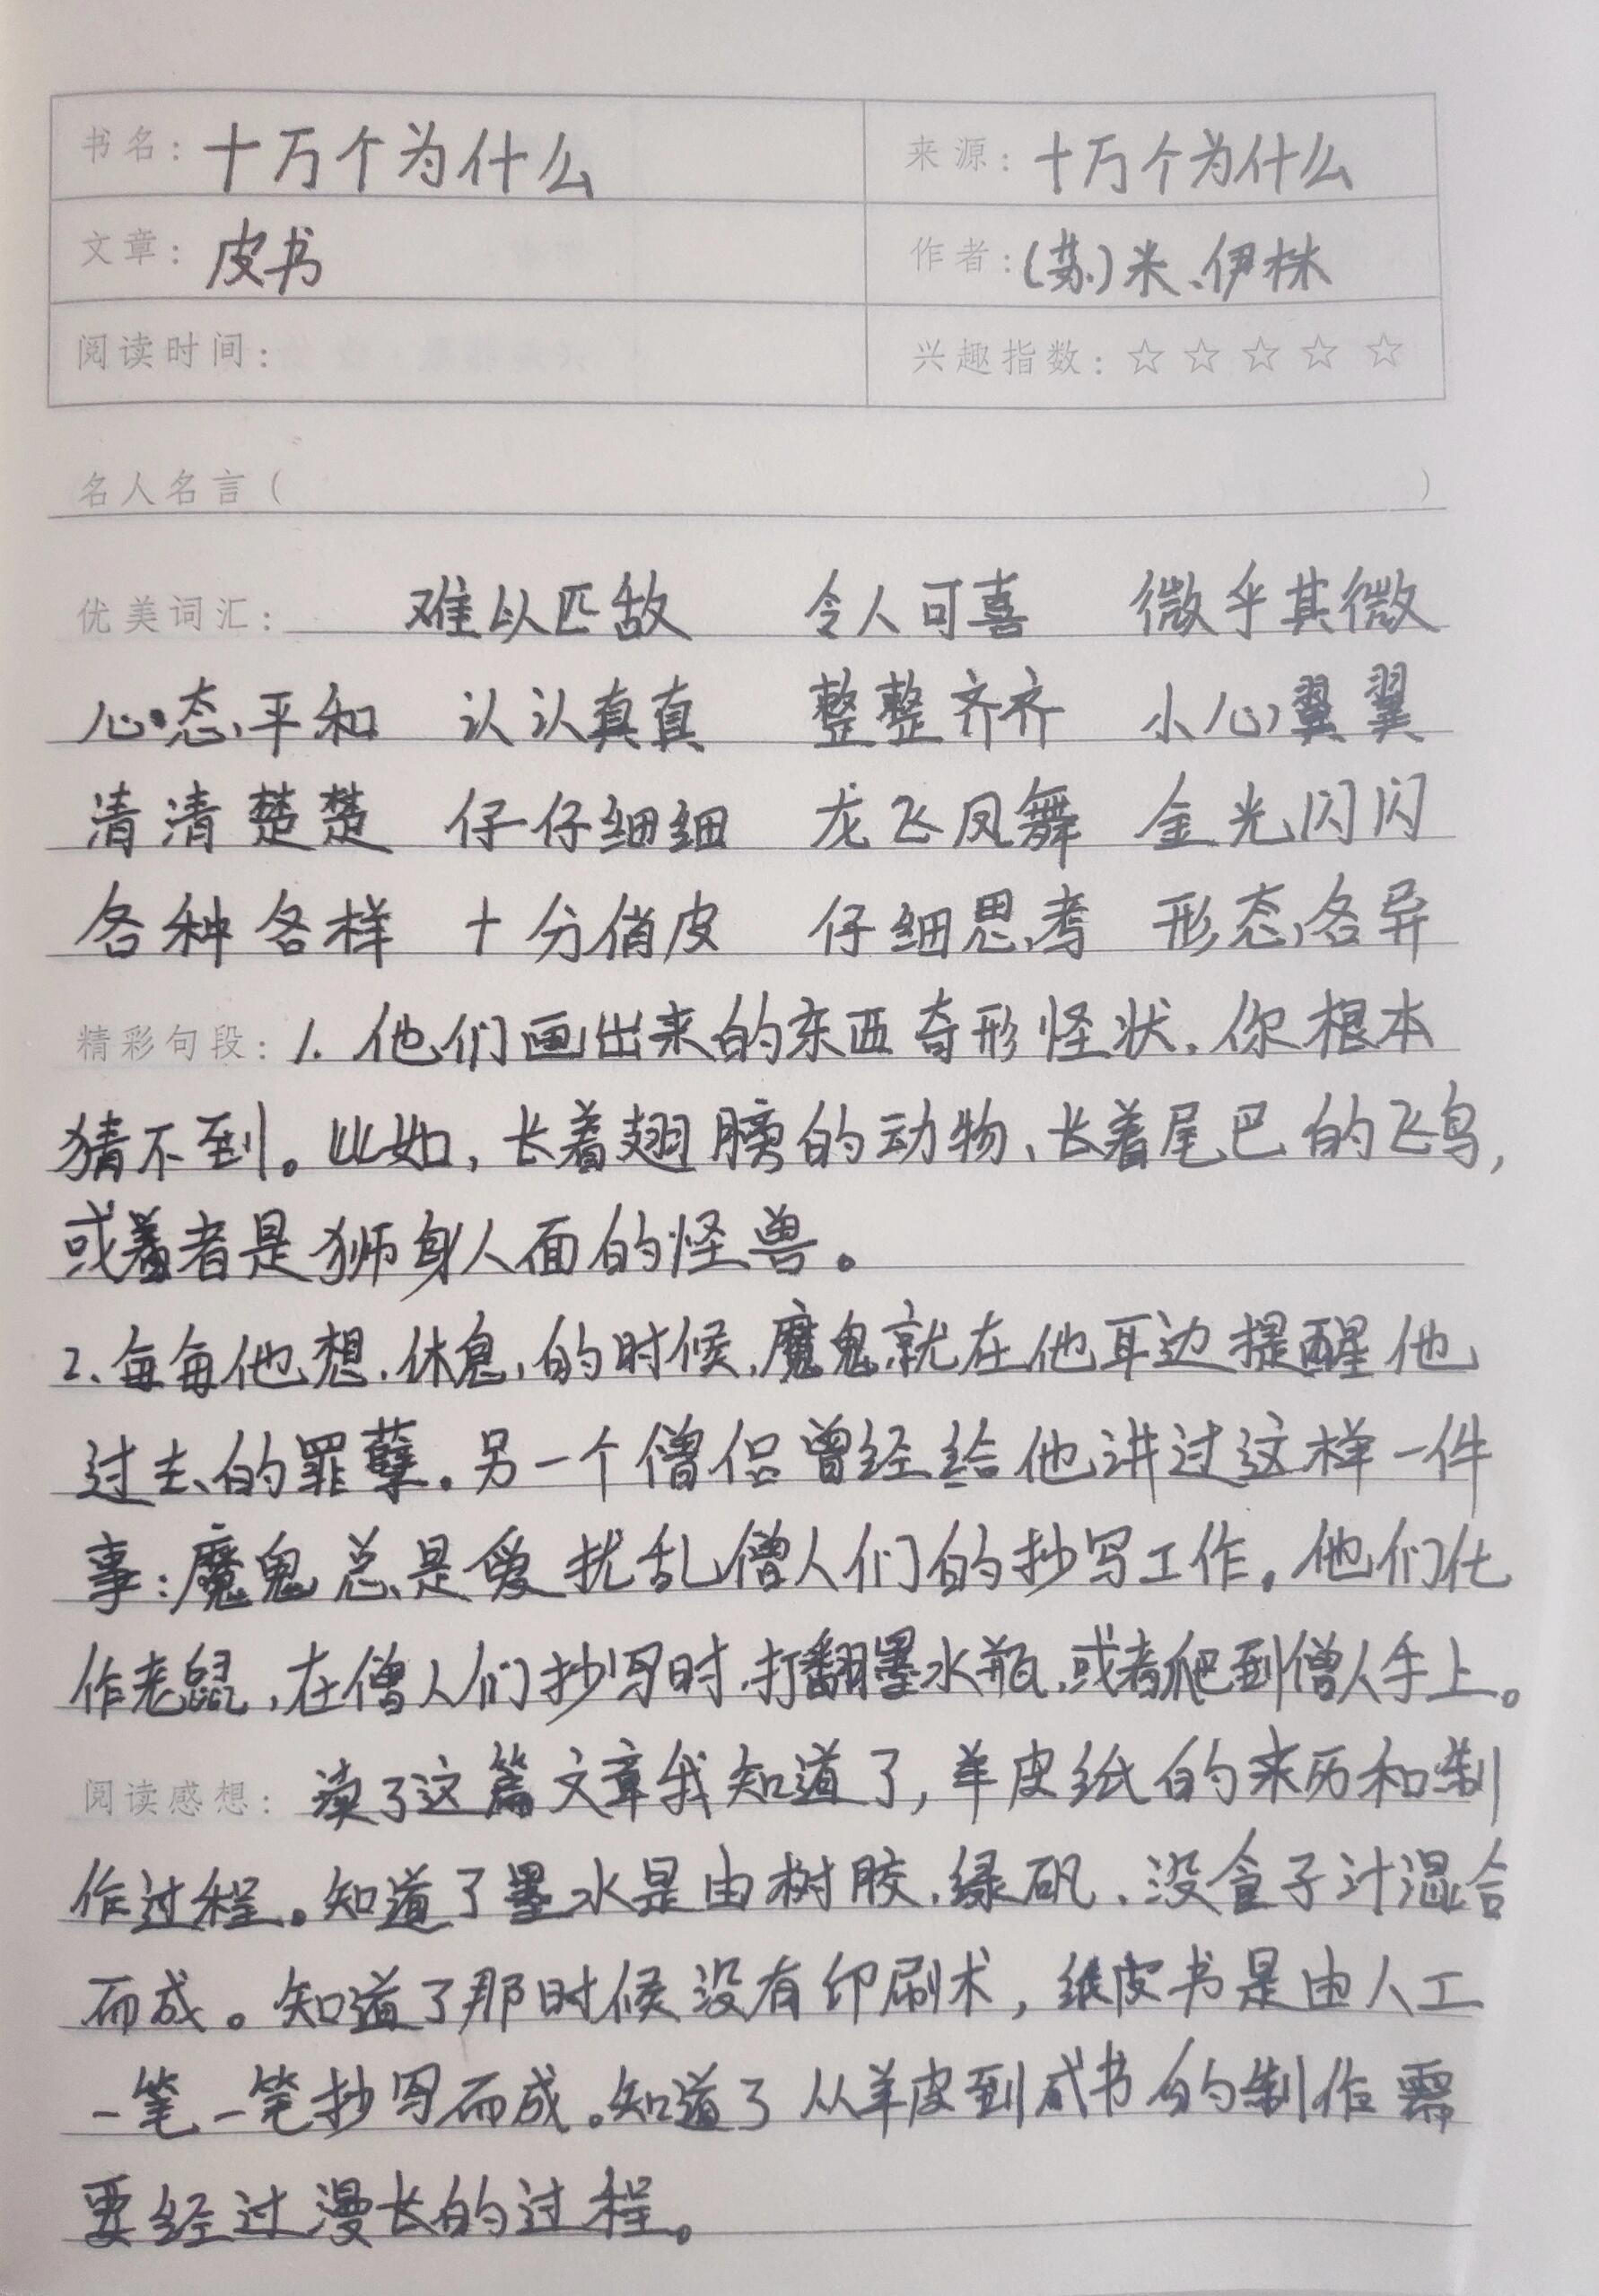 书名：十万个为什么 来源：十万个为什么
文章：皮书 作者：(苏)米、伊林
阅读时间： 兴趣指数：☆☆☆☆☆
名人名言（ ）
优美词汇： 难以匹敌 令人可喜 微乎其微
心态平和 认认真真 整整齐齐 小心翼翼
清清楚楚 仔仔细细 龙飞凤舞 金光闪闪
各种各样 十分俏皮 仔细思考 形态各异
精彩句段：1. 他们画出来的东西奇形怪状，你根本
猜不到。比如，长着翅膀的动物、长着尾巴的飞鸟，
或者是狮身人面的怪兽。
2、每每他想休息的时候，魔鬼就在他耳边提醒他
过去的罪孽。另一个僧侣曾经给他讲过这样一件
事：魔鬼总是爱扰乱僧人们的抄写工作。他们化
作老鼠，在僧人们抄写时，打翻墨水瓶，或者爬到僧人手上。
阅读感想：读了这篇文章我知道了，羊皮纸的来历和制
作过程。知道了墨水是由树胶、绿矾、没食子汁混合
而成。知道了那时候没有印刷术，纸皮书是由人工
一笔一笔抄写而成。知道了从羊皮到成书的制作需
要经过漫长的过程。